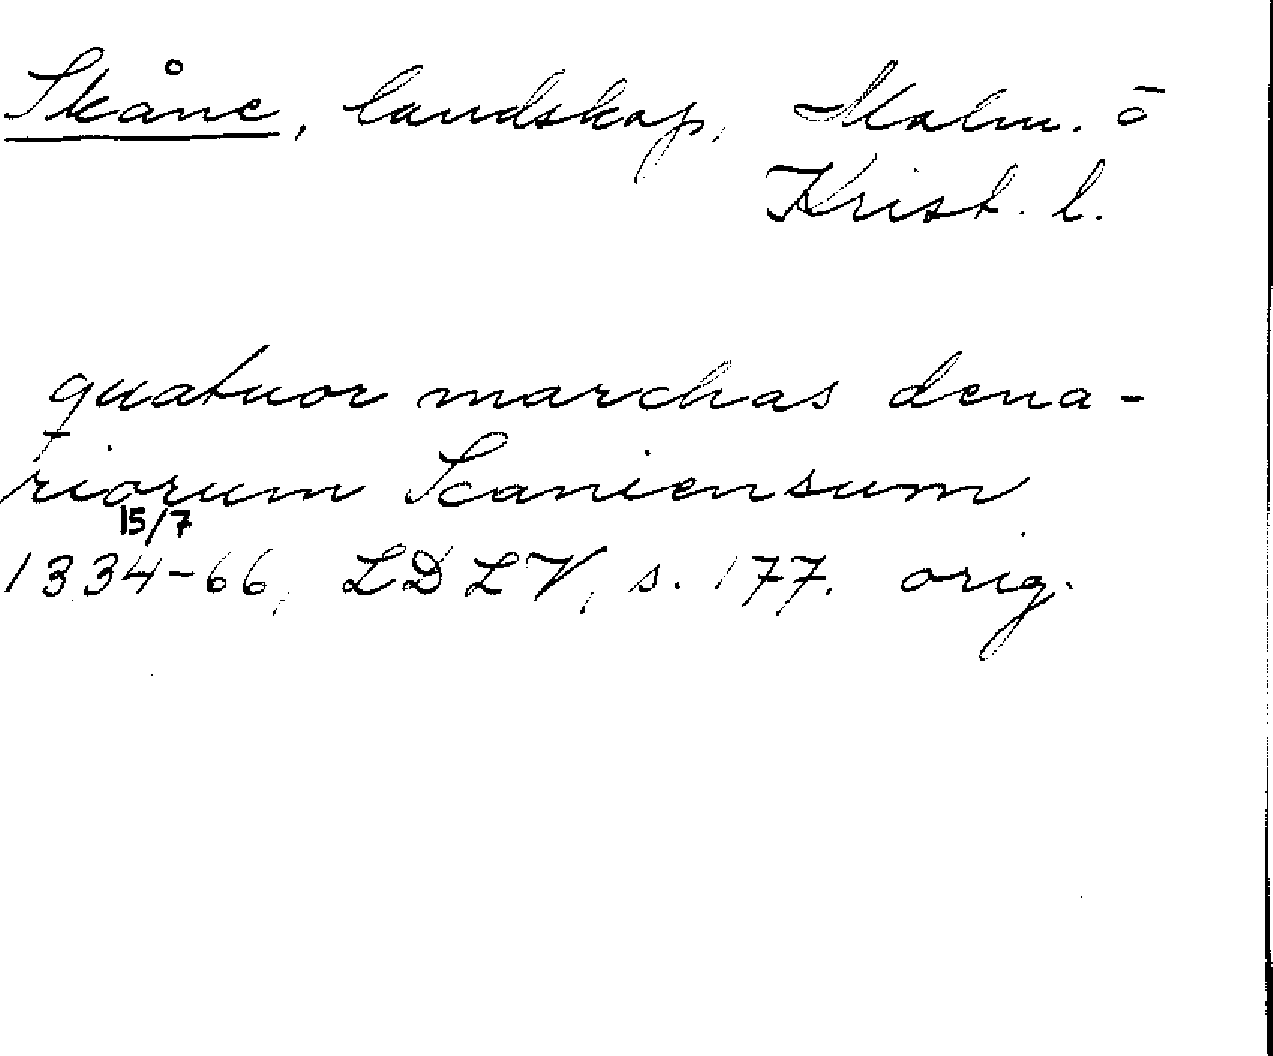 Skåne, landskap, Malm. ō
Krist. l.
quatuor marchas dena-
riorum Scaniensum
15/7
1334-66, LDLV, s. 177. orig.